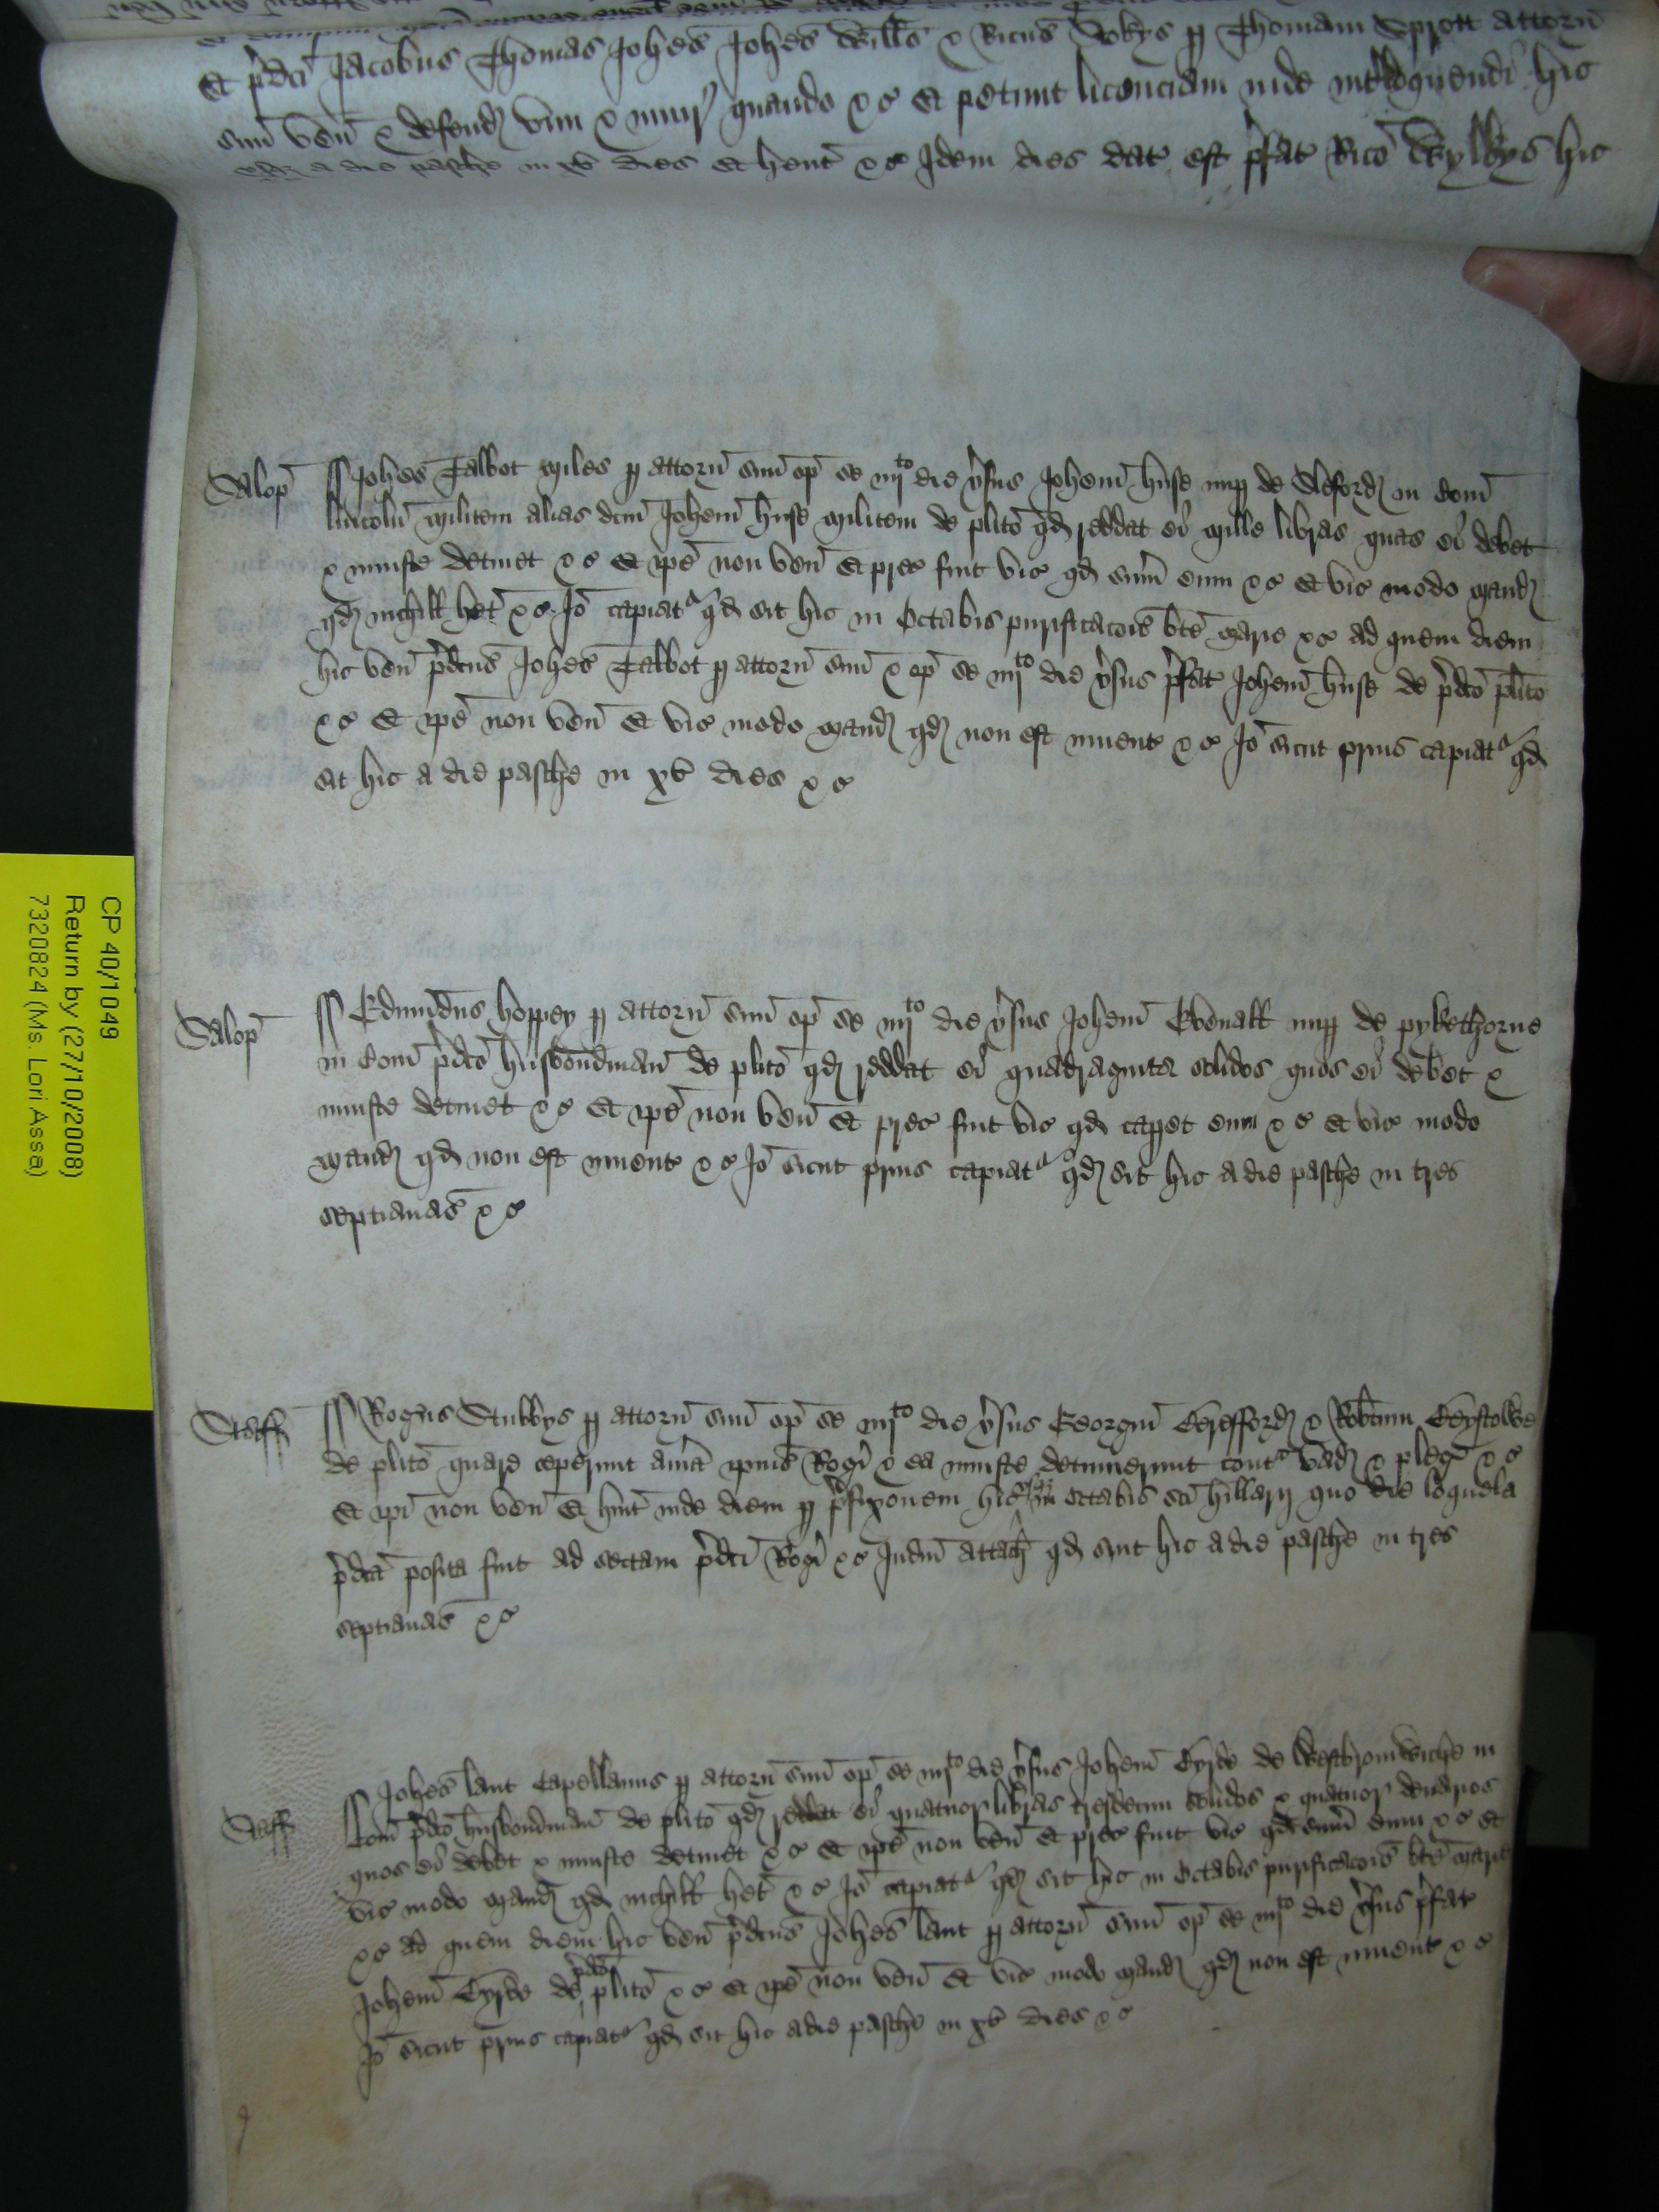 Et p'dci Jacobus Thomas Johes Johes Wills & Ricus p Thomam Sprott attorn
suu ven & defend vim & iniur quando &c Et petunt licenciam inde int'loquendi hic
usq a die pasche in xv dies Et hent &c Idem dies dat est p'fat Rico Wylkys hic
Salop Johes Talbot Miles p attorn suu op se iiijto die v'sus Johem huse nup de Sleford in Com
lincoln Militem alias dcm Johem huse Militem de plito qd reddat ei Mille libras quas ei debet
& iniuste detinet &c Et ipe non ven Et prec fuit vic qd sum eum &c Et vic modo mand
qd nichill het &c Io capiat' qd sit hic in Octabis purificacois bte Marie &c ad quem diem
hic ven p'dcus Johes Talbot p attorn suu & op se iiijto die v'sus p'fat Johem huse de p'dco plito
&c Et ipe non ven Et vic modo mand qd non est invent &c Io sicut prius capiat' qd
sit hic a die pasche in xv dies &c
Salop Edmundus hoppey p attorn suu op se iiijto die v'sus Johem Evenall nup de pykethorne
in Com p'dco husbondman de plito qd reddat ei quadraginta solidos quos ei debet &
iniuste detinet &c Et ipe non ven Et prec fuit vic qd capet eum &c Et vic modo
mand qd non est invent &c Io sicut prius capiat' qd sit hic a die pasche in tres
septianas &c
Staff Rog'us Stubbys p attorn suu op se iiijto die v'sus Georgiu Gresfford & Robtum
de plito quare ceperunt av'ia ipius Rog'i & ea iniuste detinuerunt cont' vad & pleg &c
Et ipi non ven Et hnt inde diem p p'fixonem hic in octabis sci hillarij quo die loquela
p'dca posita fuit ad sectam p'dci Rog'i &c Iudm attach qd sint hic a die pasche in tres
septianas &c
Staff Johes lant Capellanus p attorn suu op se iiijto die v'sus Johem Tyrde de Westbromwiche in
Com p'dco husbondman de plito qd reddat ei quatuor libras tresdecim solidos & quatuor denarios
quos ei debet & iniuste detinet &c Et ipe non ven Et prec fuit vic qd sum eum &c Et
vic modo mand qd nichill het &c Io capiat' qd sit hic in Octabis purificacois bte Marie
&c ad quem diem hic ven p'dcus Johes lant p attorn suu op se iiijto die v'sus p'fat
Johem Tyrde de p'dco plito &c Et ipe non ven Et vic modo mand qd non est invent &c
Io sicut prius capiat' qd sit hic a die pasche in xv dies &c
CP 40/1049
Return by (27/10/2008)
7320824 (Ms. Lori Assa)